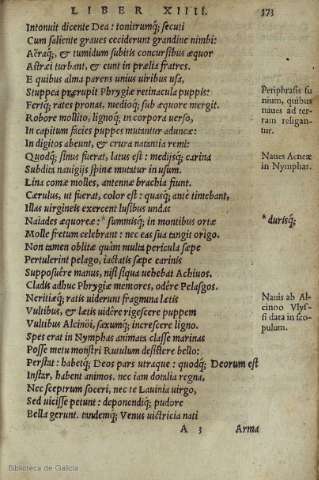 LIBER XIIII. 373
Intonuit dicente Dea: tonitrumq; secuti
Cum saliente graues ceciderunt grandine nimbi:
Aëraq;, & tumidum subitis concursibus æquor
Astræi turbant, & eunt in prælia fratres.
E quibus alma parens unius uiribus usa,
Stuppea prærupit Phrygiæ retinacula puppis:
Periphrasis fu
nium, quibus
naues ad ter-
ram religan-
tur.
Fertq; rates pronas, medioq; sub æquore mergit.
Robore mollito, lignoq; in corpora uerso,
In capitum facies puppes mutantur aduncæ:
In digitos abeunt, & crura natantia remi:
Quodq; sinus fuerat, latus est: medijsq; carina
Naues Aeneæ
in Nymphas.
Subdita nauigijs spinæ mutatur in usum.
Lina comæ molles, antennæ brachia fiunt.
Cærulus, ut fuerat, color est: quasq; ante timebant,
Illas uirgineis exercent lusibus undas
Naiades æquoreæ: * summisq; in montibus ortæ
* durisq;
Molle fretum celebrant: nec eas sua tangit origo.
Non tamen oblitæ quàm multa pericula sæpe
Pertulerint pelago, iactatis sæpe carinis
Supposuêre manus, nisi siqua uehebat Achiuos.
Cladis adhuc Phrygiæ memores, odêre Pelasgos.
Neritiæq; ratis uiderunt fragmina lætis
Naues ab Al-
cinoo Vlys-
si data in sco-
pulum.
Vultibus, & lætis uidêre rigescere puppem
Vultibus Alcinoi, saxumq; increscere ligno.
Spes erat in Nymphas animata classe marinas
Posse metu monstri Rutulum desistere bello:
Perstat: habetq; Deos pars utraque: quodq; Deorum est
Instar, habent animos. nec iam dotalia regna,
Nec sceptrum soceri, nec te Lauinia uirgo,
Sed uicisse petunt: deponendiq; pudore
Bella gerunt. tandemq; Venus uictricia nati
A 3 Arma
Biblioteca de Galicia